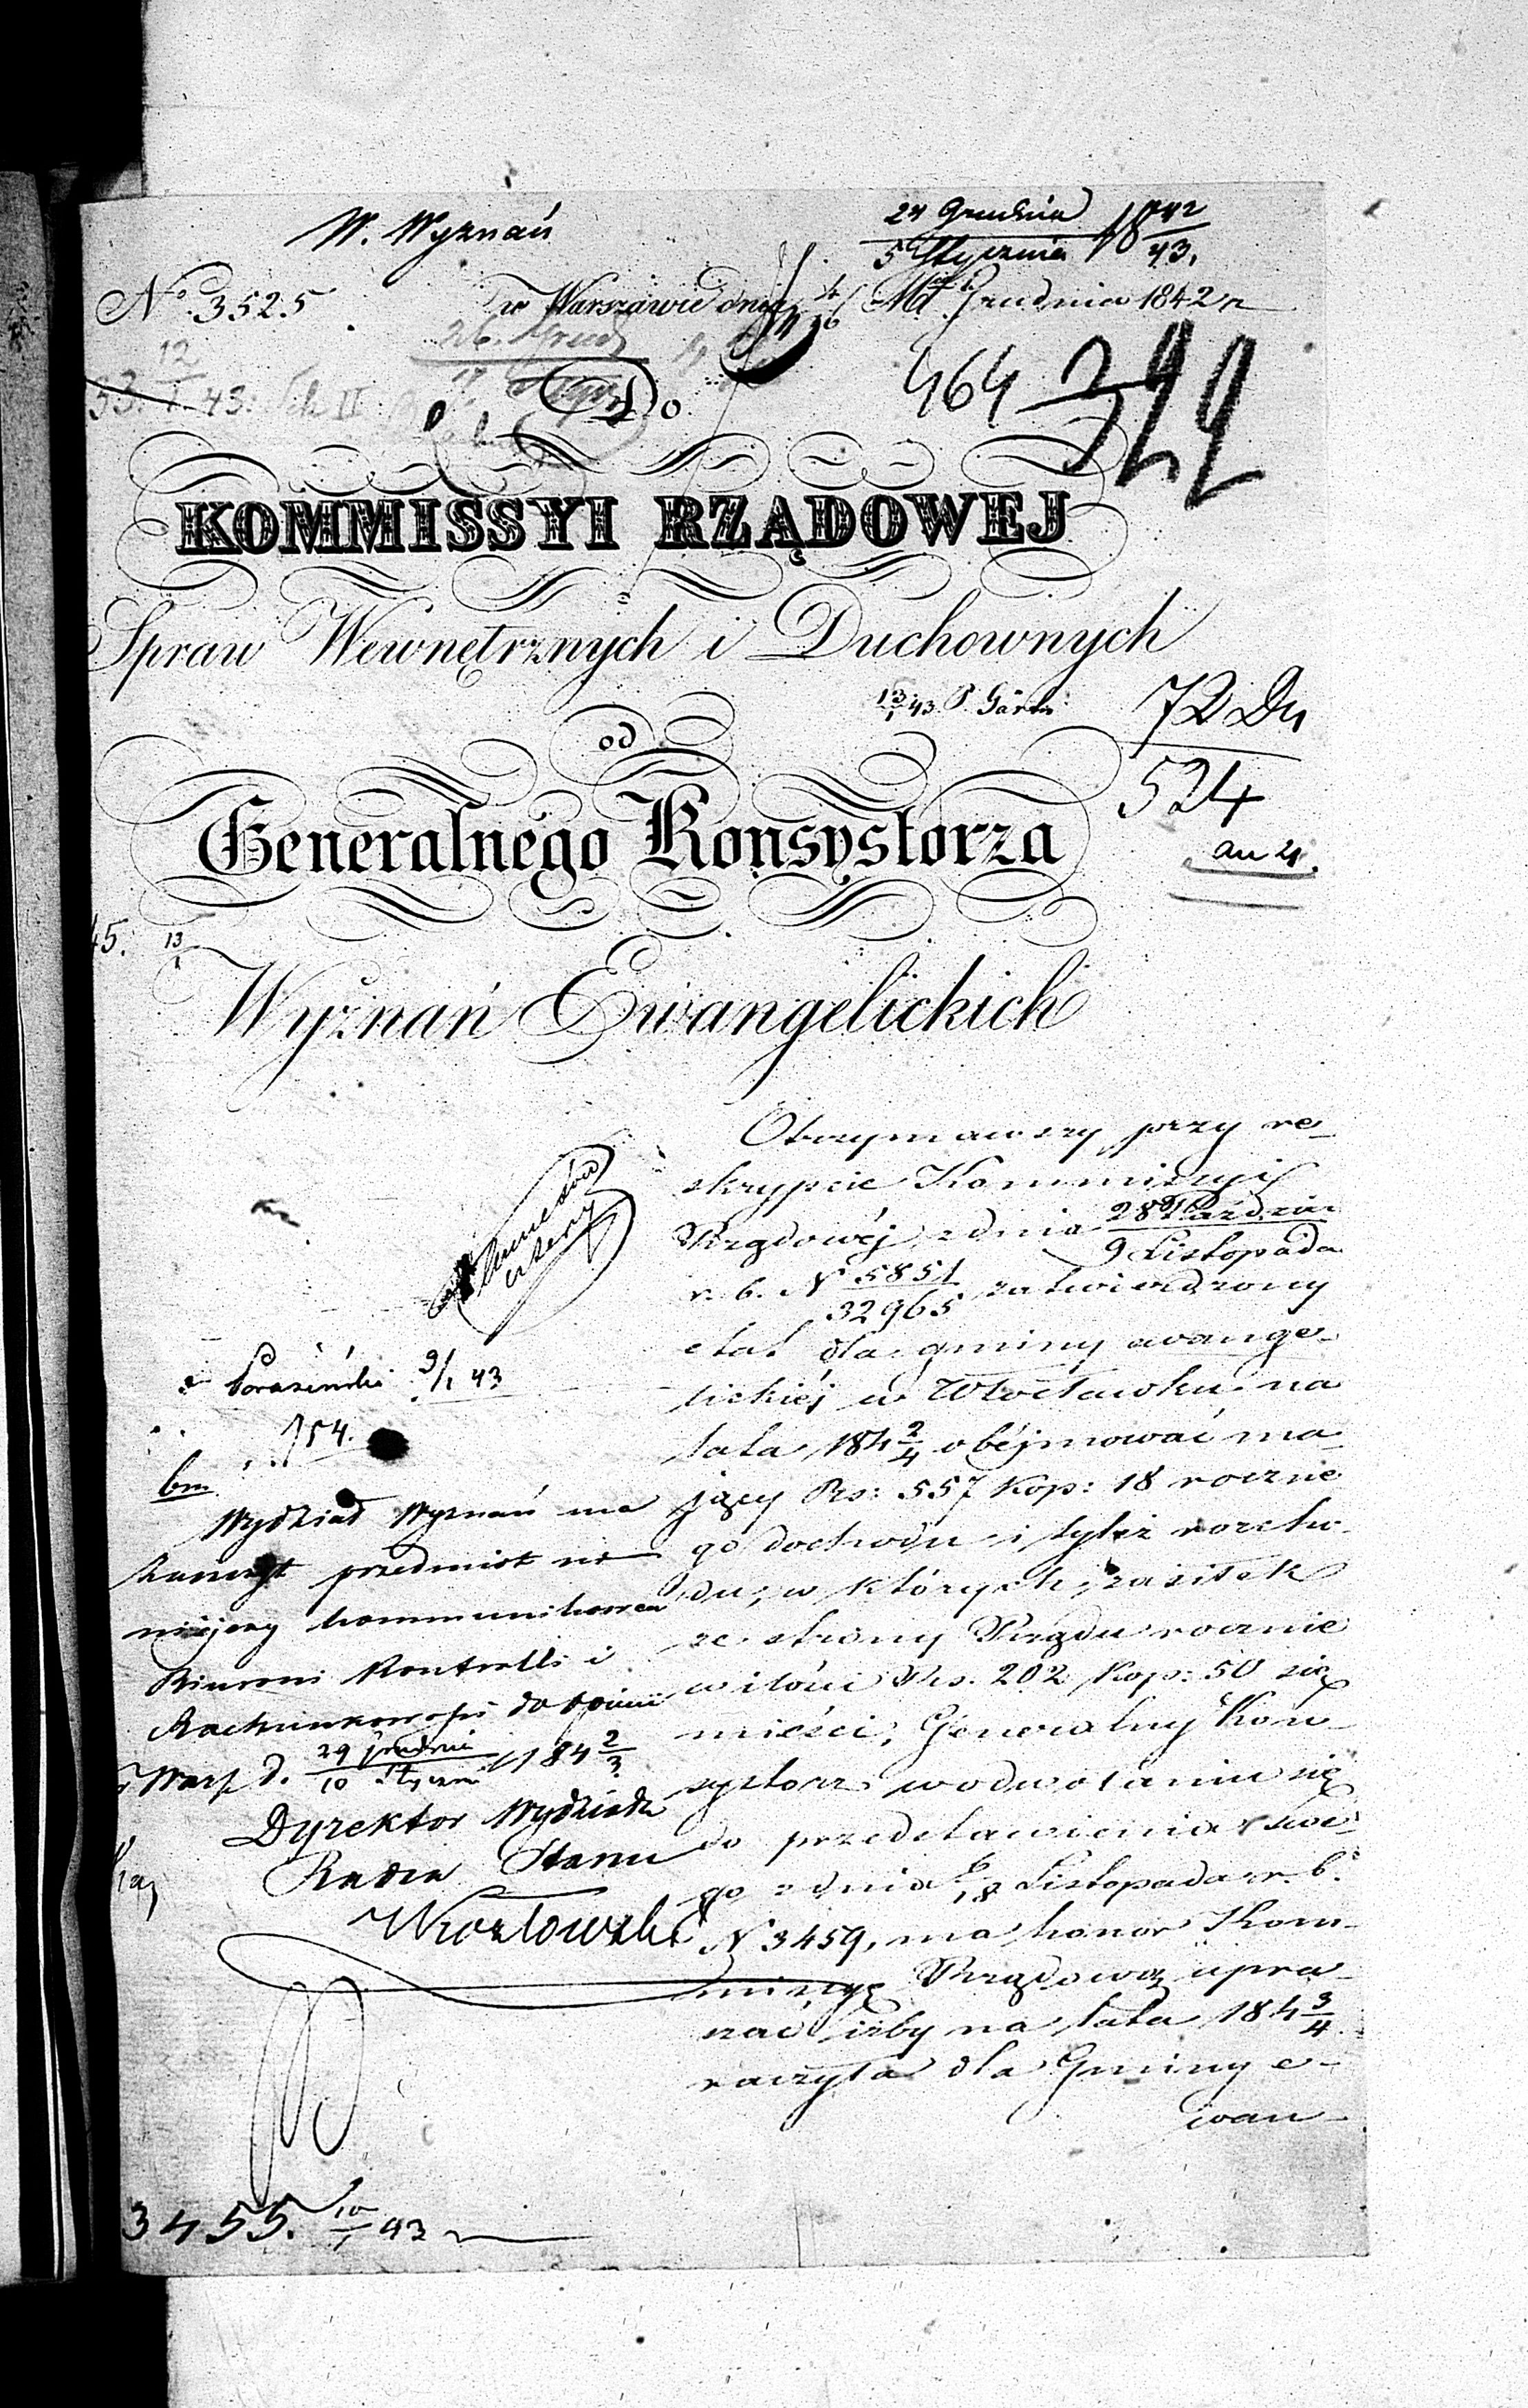 W. Wyznań
24 Grudnia / 5 Stycznia 18 42/43.
No. 3525
w Warszawie dnia 4/16 Grudnia 1842 r
26. Grud
12/1 43.
Do
464
KOMMISSYI RZĄDOWEJ
Spraw Wewnętrznych i Duchownych
13/1 43.
72
524
od
Generalnego Konsystorza
45. 13/1
Wyznań Ewangelickich
Otrzymawszy przy re-
skrypcie Kommissyi
Rządowéj z dnia 28 Paździer / 9 Listopada
r. b. N 5851/32965 zatwierdzony
etat dla gminy ewange-
lickiéj w Włocławku na
lata 184 2/4 obéjmować ma-
jący Rs: 557 Kop: 18 roczne
go dochodu i tyleż rozcho-
du, w których zasiłek
ze strony Rządu rocznie
w ilości Rs. 202 Kop: 50 się
mieści, Generalny Kon-
systorz w odwołaniu się
do przedstawienia swe-
go z dnia 6/18 Listopada r. b.
N 3459, ma honor Kom-
missyę Rządową upra-
szać iżby na lata 184 3/4
raczyła dla Gminy e-
wan-
9/1 43
154.
bm
Wydział Wyznań ma
przedmiot ni-
niejszy kommunikować
Biuroni Kontrolli i
Rachunkowości do opinii
w Warsz d. 29 Grudnia / 10 Styczni 184 2/3
Dyrektor Wydziału
Radca Stanu
3455. 10/1 43